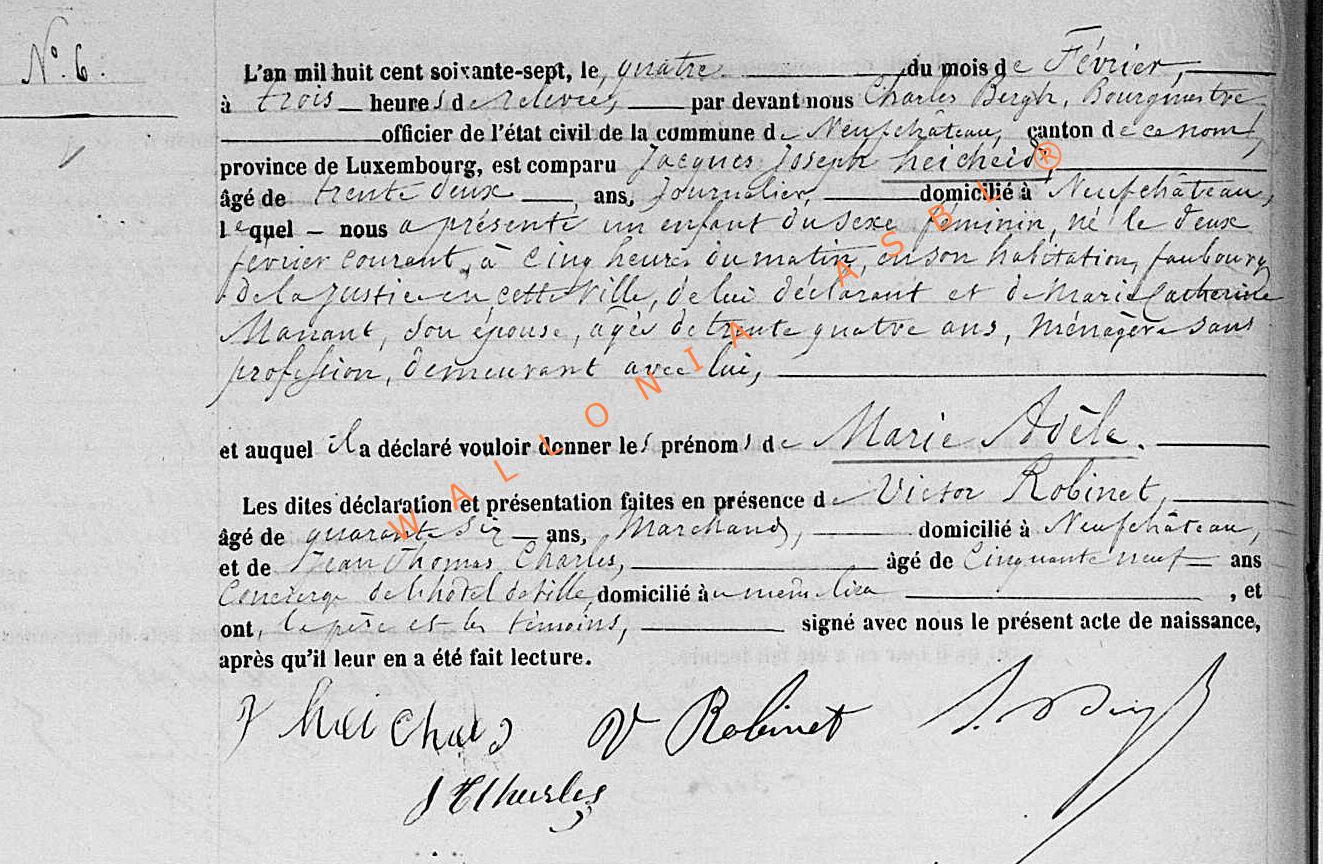 N°. 6.
L'an mil huit cent soixante-sept, le quatre du mois de Février,
à trois heures de relevée, par devant nous Charles Bergh, Bourgmestre
officier de l'état civil de la commune de Neufchâteau, canton de ce nom,
province de Luxembourg, est comparu Jacques Joseph heicheid, ®
âgé de trente deux ans, Journalier, domicilié à Neufchâteau,
lequel nous a présenté un enfant du sexe féminin, né le deux
février courant, à cinq heures du matin, en son habitation, faubourg
de la Justice en cette ville, de lui déclarant et de Marie Catherine
Manant, son épouse, âgée de trente quatre ans, Ménagère sans
profession, demeurant avec lui,
et auquel il a déclaré vouloir donner les prénoms de Marie Adèle.
Les dites déclaration et présentation faites en présence de Victor Robinet,
âgé de quarante six ans, Marchand, domicilié à Neufchâteau,
et de Jean Thomas Charles, âgé de Cinquante neuf ans
Concierge de l'hôtel de ville, domicilié au même lieu , et
ont, le père et les témoins, signé avec nous le présent acte de naissance,
après qu'il leur en a été fait lecture.
V Robinet
J T Charles
WALLONIA ASBL